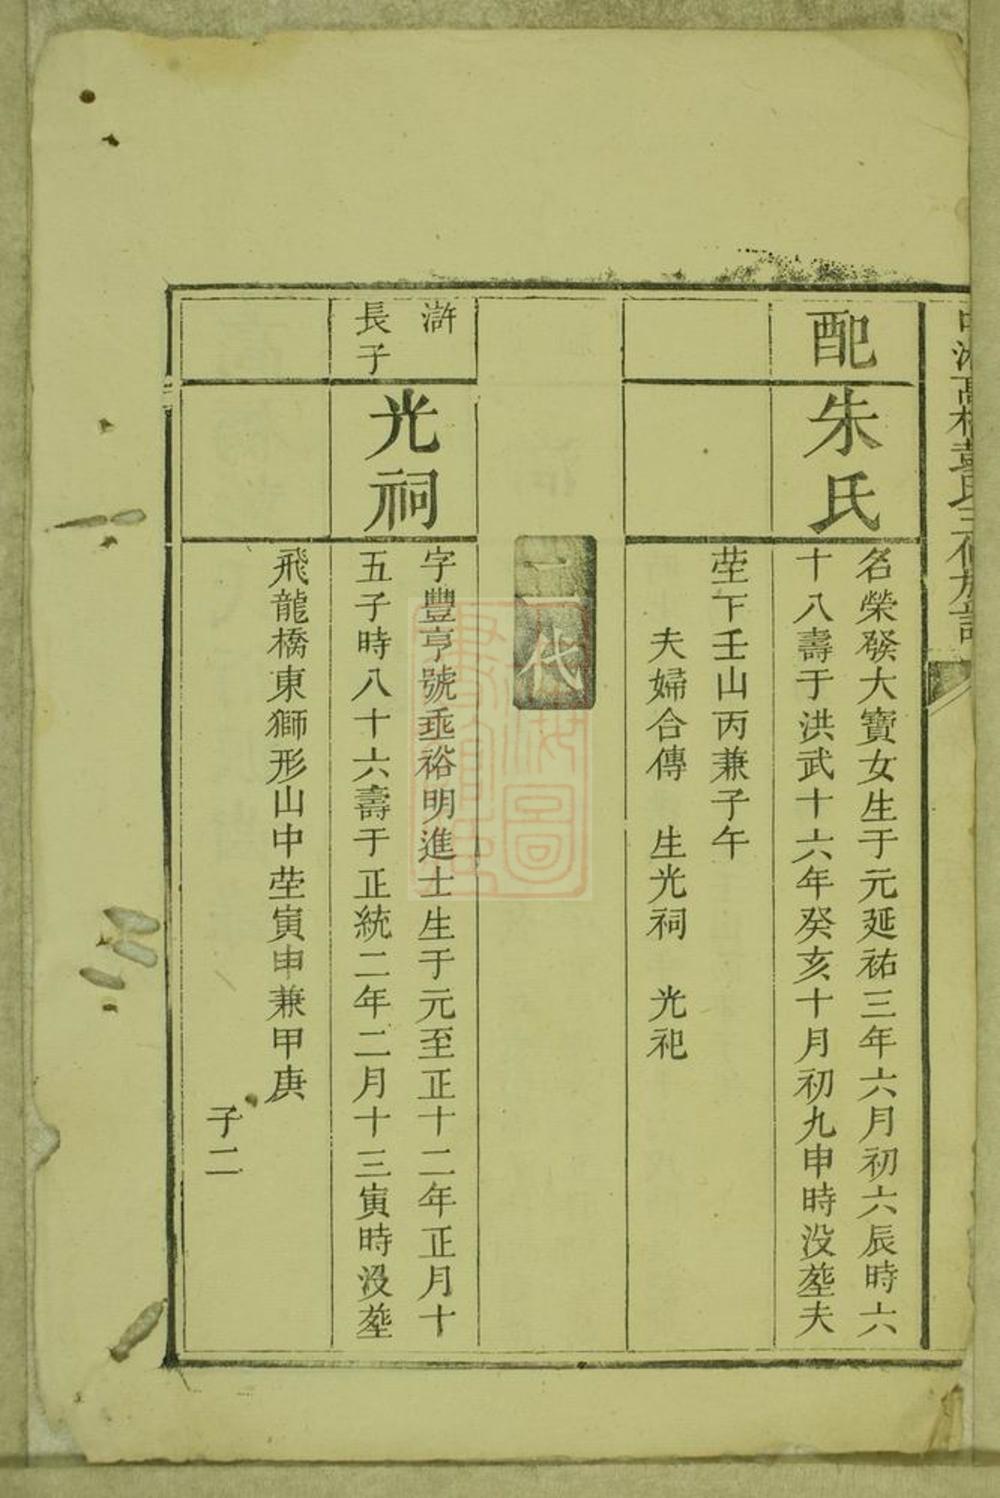 配
朱氏
名榮發大寶女生于元延祐三年六月初六辰時六
十八壽于洪武十六年癸亥十月初九申時没塟夫
茔下壬山丙兼子午
夫婦合傳　生光祠　光祀
二代
滸
長子
光祠
字豐亨號乖裕明進士生于元至正十二年正月十
五子時八十六壽于正統二年二月十三寅時没塟
飛龍橋東獅形山中茔寅申兼甲庚
子二